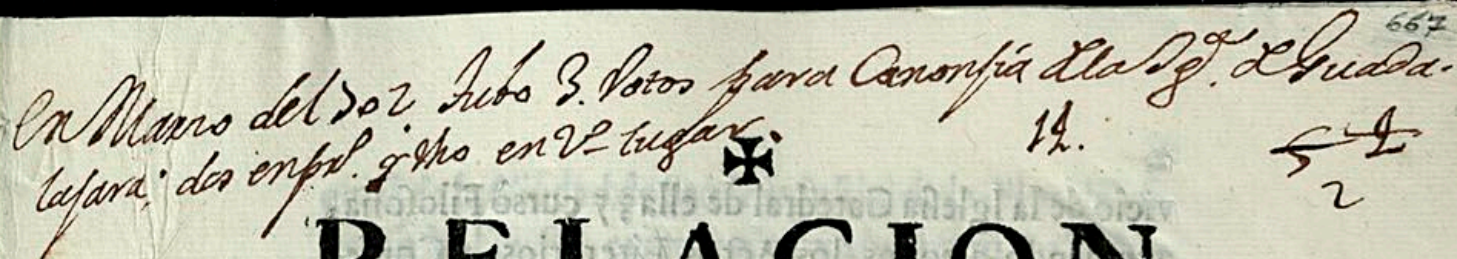 667
En Marzo del 802 tubo 3. Votos para Canongia de la Yg.ª de Guada-
lajara; dos en pr.
en 2º lugar.
14.
2
✠
RELACION